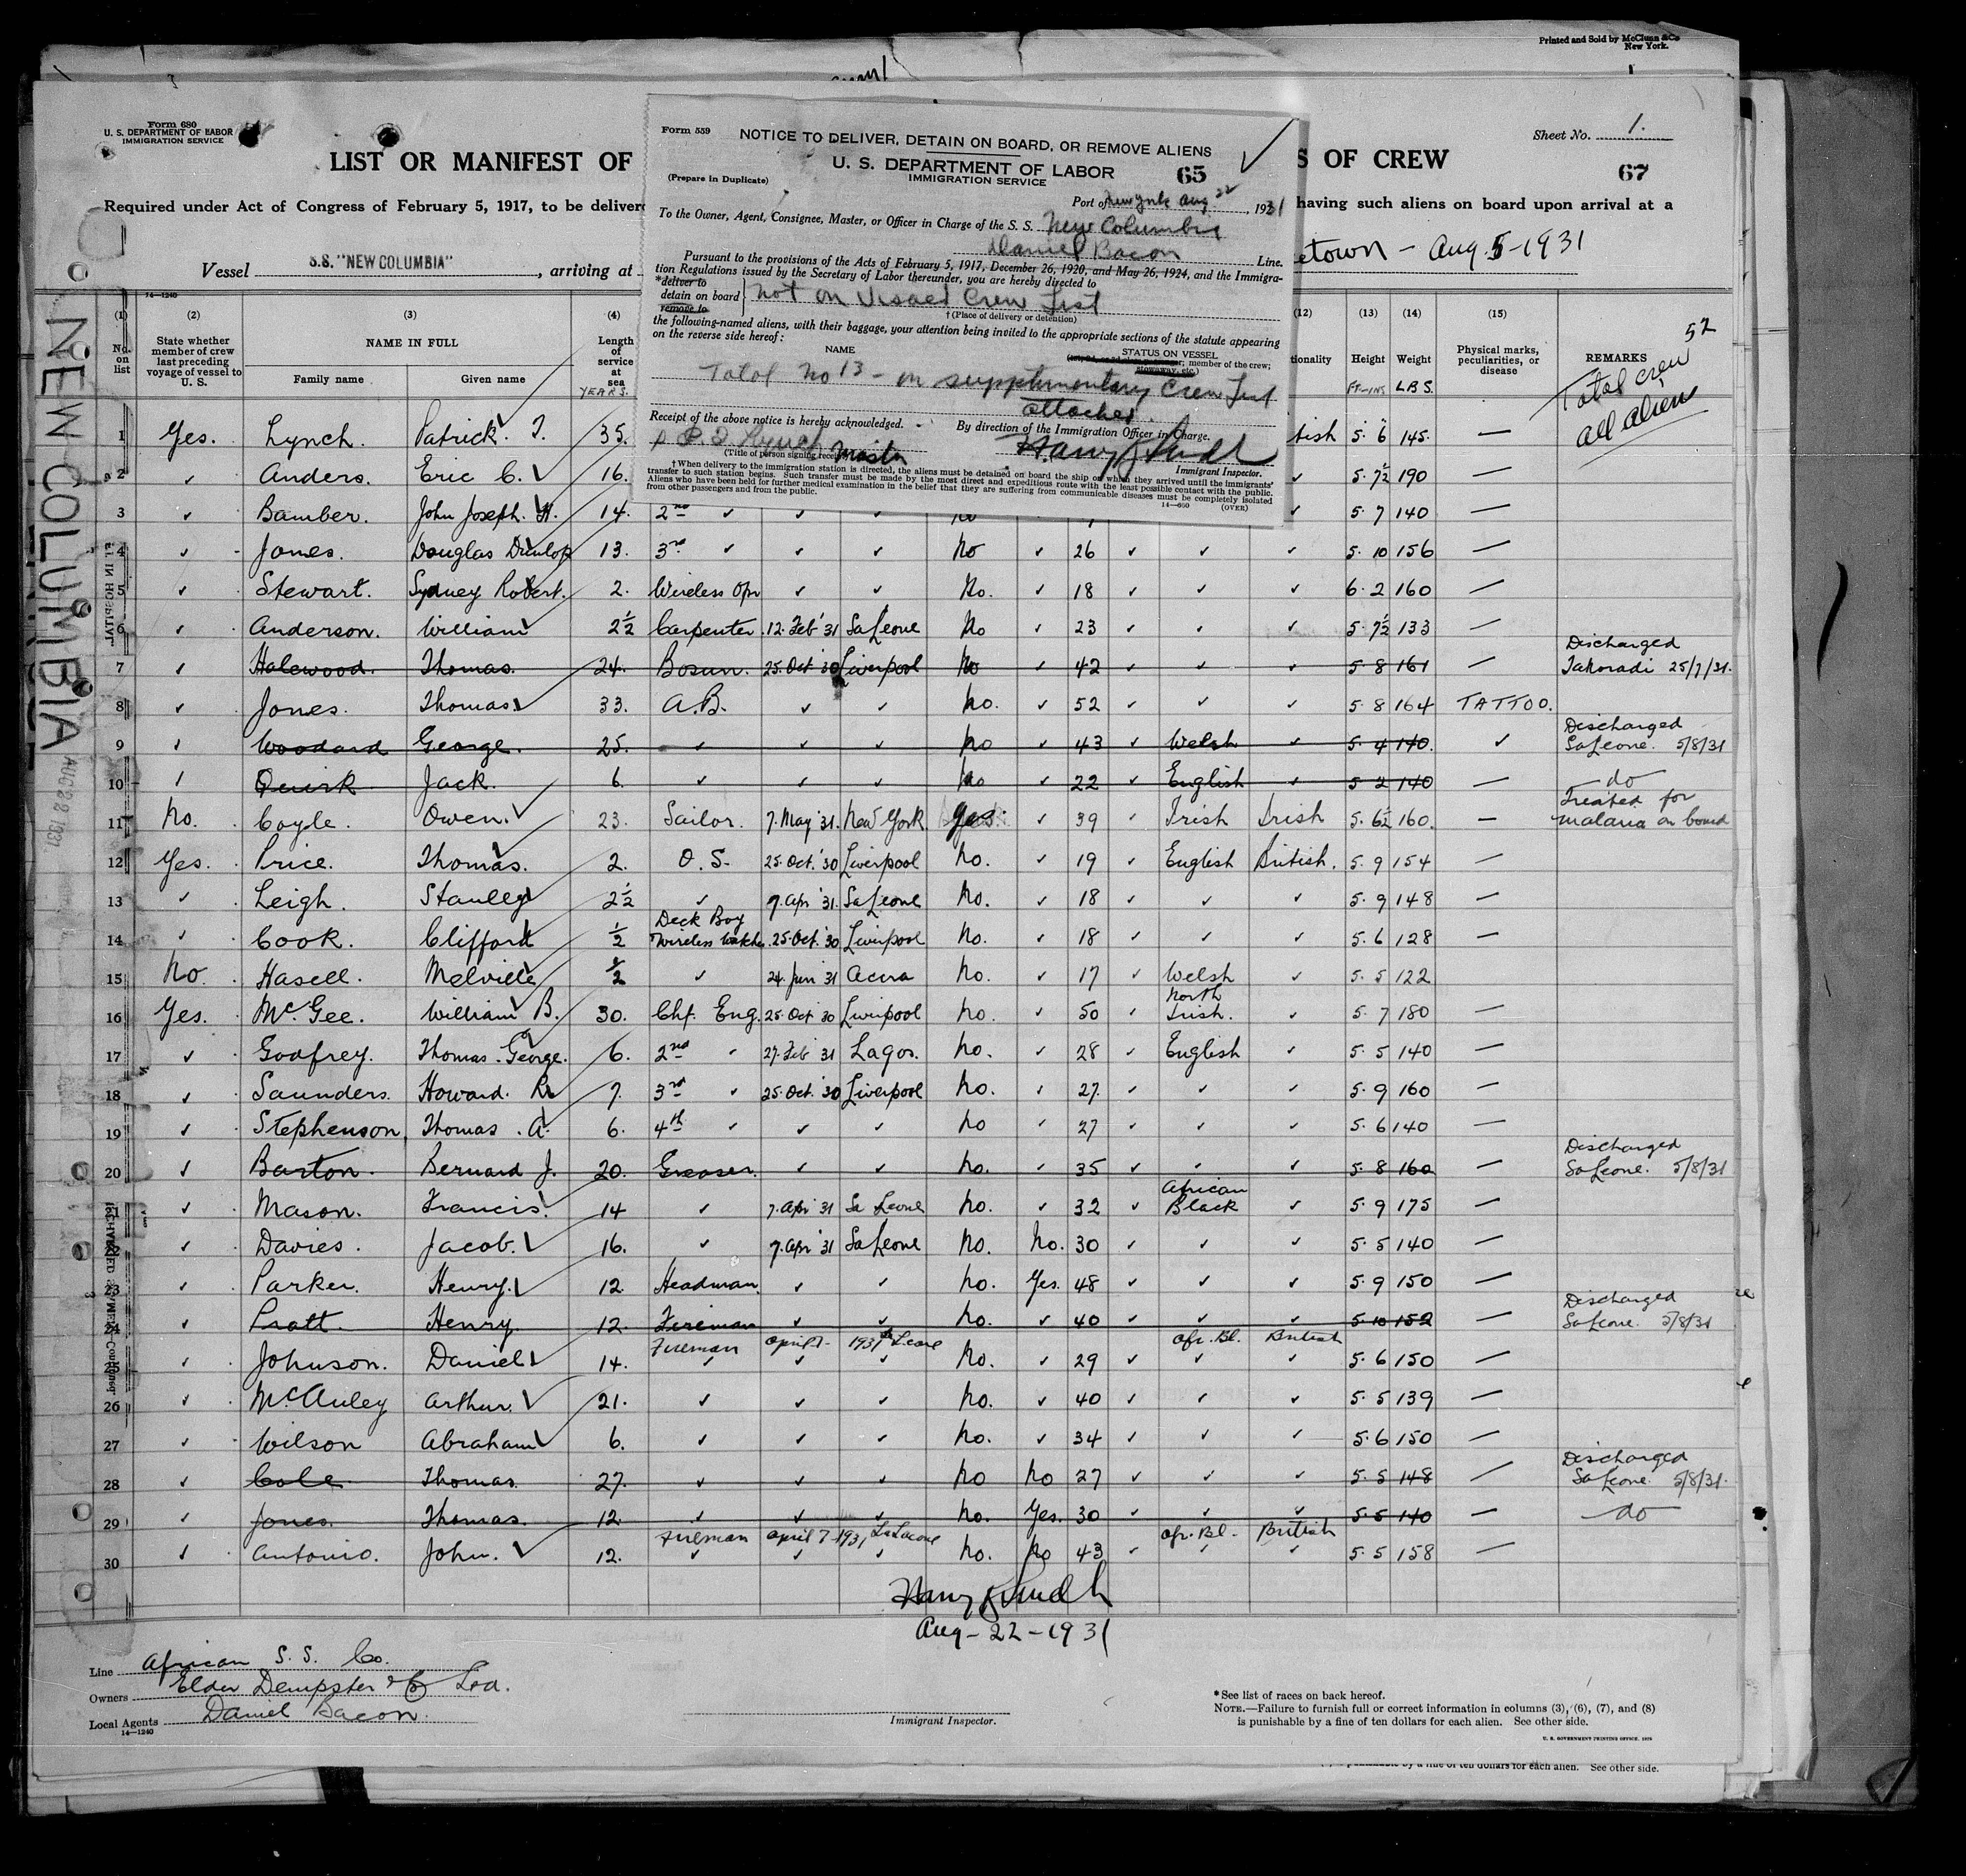 Printed and Sold by McClunn & Co
New York.
Form 680
U. S. DEPARTMENT OF LABOR
IMMIGRATION SERVICE
Sheet No. 1.
LIST OR MANIFEST OF
S OF CREW
67
Required under Act of Congress of February 5, 1917, to be delivere
having such aliens on board upon arrival at a
Vessel S.S. "NEW COLUMBIA", arriving at
etown - Aug. 5-1931
Form 559
NOTICE TO DELIVER, DETAIN ON BOARD, OR REMOVE ALIENS
U. S. DEPARTMENT OF LABOR
IMMIGRATION SERVICE
65
(Prepare in Duplicate)
Port of New York Aug 22, 1931
To the Owner, Agent, Consignee, Master, or Officer in Charge of the S. S. New Columbia
Daniel Bacon Line.
Pursuant to the provisions of the Acts of February 5, 1917, December 26, 1920, and May 26, 1924, and the Immigra-
tion Regulations issued by the Secretary of Labor thereunder, you are hereby directed to
*deliver to
detain on board
remove to
Not on Visaed Crew List
†(Place of delivery or detention)
the following-named aliens, with their baggage, your attention being invited to the appropriate sections of the statute appearing
on the reverse side hereof:
NAME
STATUS ON VESSEL
member of the crew;
stowaway, etc.)
Total No 13 - on supplimentary Crew List
attached.
Receipt of the above notice is hereby acknowledged.
By direction of the Immigration Officer in Charge.
P. J. Lynch Master
(Title of person signing receipt)
Immigrant Inspector.
†When delivery to the immigration station is directed, the aliens must be detained on board the ship on which they arrived until the immigrants'
transfer to such station begins. Such transfer must be made by the most direct and expeditious route with the least possible contact with the public.
Aliens who have been held for further medical examination in the belief that they are suffering from communicable diseases must be completely isolated
from other passengers and from the public.
14—650 (OVER)
14—1240
(1) (2) (3) (4) (12) (13) (14) (15)
No. on list
State whether member of crew last preceding voyage of vessel to U. S.
NAME IN FULL
Family name
Given name
Length of service at sea
YEARS.
tionality
Height
FT-INS
Weight
LBS.
Physical marks, peculiarities, or disease
REMARKS
52
Total crew
all aliens
1 Yes. Lynch. Patrick. J. 35. tish 5. 6 145. —
2 ✓ Anders. Eric C. 16. ✓ 5. 7½ 190 —
3 ✓ Bamber. John Joseph. H. 14. 2nd ✓ ✓ ✓ No ✓ 5 7 140 —
4 ✓ Jones. Douglas Dunlop 13. 3rd ✓ ✓ ✓ No ✓ 26 ✓ ✓ ✓ 5. 10 156 —
5 ✓ Stewart. Sydney Robert. 2. Wireless Opr ✓ ✓ No. ✓ 18 ✓ ✓ ✓ 6. 2 160 —
6 ✓ Anderson. William 2½ Carpenter. 12. Feb '31 SaLeone No ✓ 23 ✓ ✓ ✓ 5. 7½ 133 —
7 ✓ Halewood. Thomas. 24. Bosun. 25. Oct '30 Liverpool No ✓ 42 ✓ ✓ ✓ 5 8 161 — Discharged Takoradi 25/7/31.
8 ✓ Jones. Thomas. 33. A.B. ✓ ✓ No. ✓ 52 ✓ ✓ ✓ 5 8 164 TATTOO.
9 ✓ Woodard George. 25. ✓ ✓ ✓ No ✓ 43 ✓ Welsh ✓ 5. 4 140. ✓ Discharged SaLeone. 5/8/31
10 ✓ Quirk Jack. 6. ✓ ✓ ✓ No ✓ 22 ✓ English ✓ 5 2 140 — do
11 No. Coyle. Owen. 23. Sailor. 7. May '31. New York. Yes. ✓ 39 ✓ Irish Irish 5. 6½ 160. — Treated for malaria on board
12 Yes. Price. Thomas. 2. O. S. 25. Oct. '30 Liverpool No. ✓ 19 ✓ English British. 5. 9 154 —
13 ✓ Leigh. Stanley 2½ ✓ 7. Apr '31. SaLeone No. ✓ 18 ✓ ✓ ✓ 5. 9 148 —
14 ✓ Cook. Clifford ½ Deck Boy Wireless Watcher. 25. Oct. '30 Liverpool No. ✓ 18 ✓ ✓ ✓ 5. 6 128 —
15 No. Hasell. Melville ½ ✓ 24. Jun '31 Accra No. ✓ 17 ✓ Welsh ✓ 5. 5 122
16 Yes. McGee. William B. 30. Chf. Eng. 25. Oct '30 Liverpool No. ✓ 50 ✓ North Irish. ✓ 5. 7 180 —
17 ✓ Godfrey. Thomas. George. 6. 2nd ✓ 27. Feb '31 Lagos. No. ✓ 28 ✓ English ✓ 5. 5 140 —
18 ✓ Saunders. Howard. R. 7. 3rd ✓ 25. Oct. '30 Liverpool No. ✓ 27. ✓ ✓ ✓ 5. 9 160 —
19 ✓ Stephenson, Thomas. A. 6. 4th ✓ ✓ ✓ No ✓ 27 ✓ ✓ ✓ 5. 6 140 —
20 ✓ Barton. Bernard J. 20. Greaser. ✓ ✓ No. ✓ 35 ✓ ✓ ✓ 5. 8 160 — Discharged SaLeone. 5/8/31
21 ✓ Mason. Francis. 14 ✓ 7. Apr '31 Sa Leone No. ✓ 32 ✓ African Black ✓ 5. 9 175 —
22 ✓ Davies. Jacob. 16. ✓ 7. Apr '31 SaLeone No. No. 30 ✓ ✓ ✓ 5. 5 140 —
23 ✓ Parker. Henry. 12. Headman. ✓ ✓ No. Yes. 48 ✓ ✓ ✓ 5. 9 150 —
24 ✓ Pratt. Henry. 12. Fireman ✓ ✓ No. ✓ 40 ✓ ✓ ✓ 5. 10 152 — Discharged SaLeone. 5/8/31
25 ✓ Johnson. Daniel 14. Fireman April 7- 1931 SaLeone No. ✓ 29 ✓ Afr. Bl. British 5. 6 150 —
26 ✓ McAuley Arthur. 21. ✓ ✓ ✓ No. ✓ 40 ✓ ✓ ✓ 5. 5 139 —
27 ✓ Wilson Abraham 6. ✓ ✓ ✓ No. ✓ 34 ✓ ✓ ✓ 5. 6 150 —
28 ✓ Cole Thomas. 27. ✓ ✓ ✓ No No 27 ✓ ✓ ✓ 5. 5 148 — Discharged SaLeone. 5/8/31.
29 ✓ Jones. Thomas. 12. ✓ ✓ ✓ No. Yes. 30 ✓ ✓ ✓ 5. 5 140 — do
30 ✓ Antonio. John. 12. Fireman April 7-1931 SaLeone No. No 43 ✓ Afr. Bl. British 5. 5 158 —
Aug-22-1931
NEW COLUMBIA
AUG 22 1931
Line African S. S. Co.
Owners Elder Dempster & Co Ltd.
Local Agents Daniel Bacon.
14—1240
Immigrant Inspector.
*See list of races on back hereof.
NOTE.—Failure to furnish full or correct information in columns (3), (6), (7), and (8)
is punishable by a fine of ten dollars for each alien. See other side.
U. S. GOVERNMENT PRINTING OFFICE
by a fine of ten dollars for each alien. See other side.